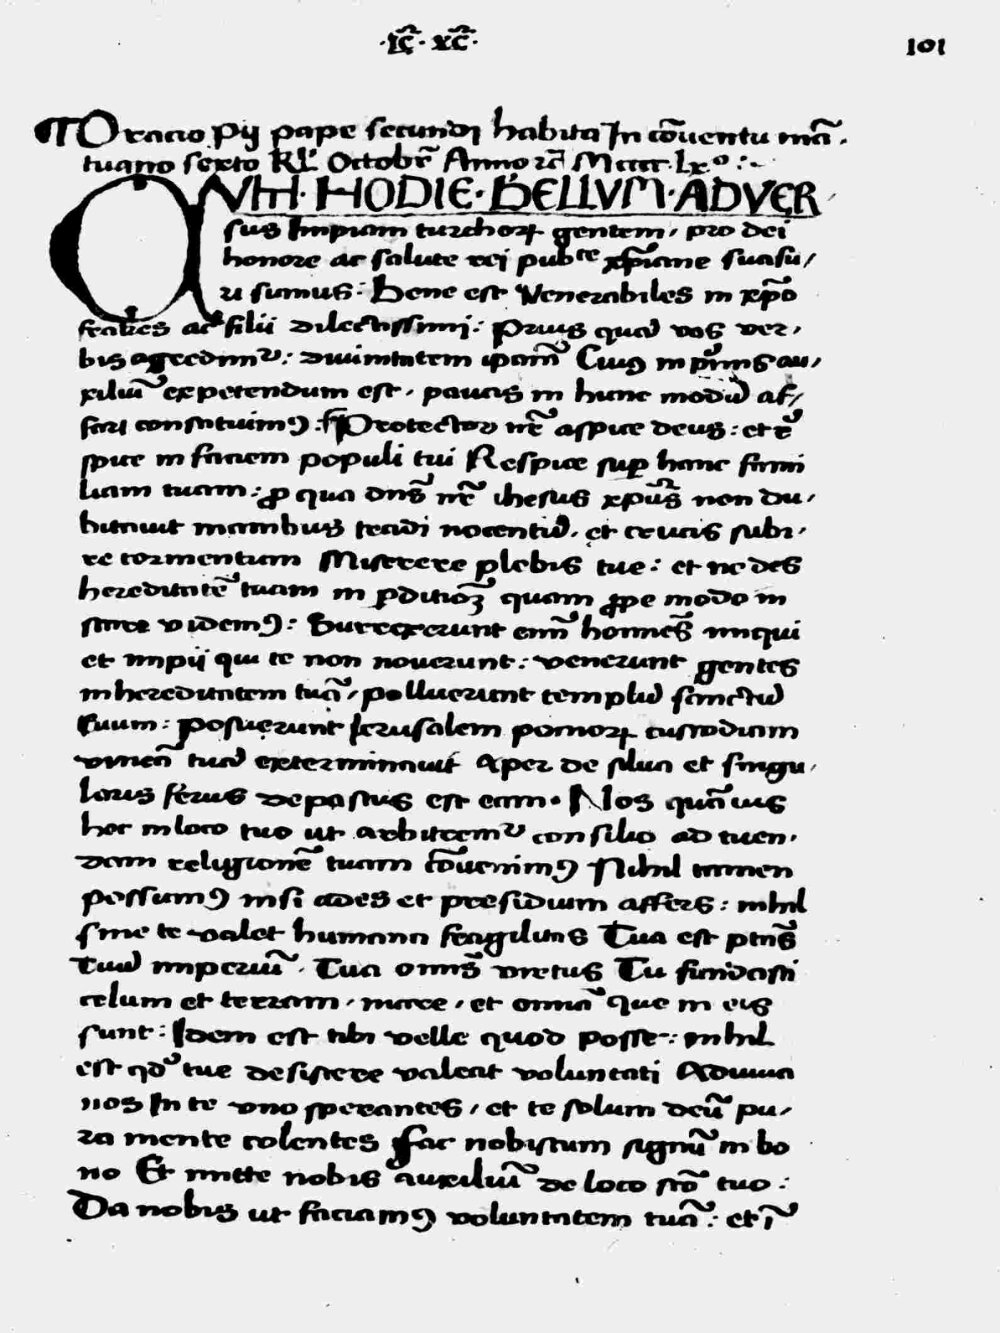 ·Ic̃·xc̃·
101
Oracio Pij pape secundi habita In cõuentu mã-
tuano sexto Kl' Octobr̃ Anno rc̃ Mcccc·lxº:·
QVUM·HODIE·BELLVM·ADVER
sus Impiam turchoꝝ gentem, pro dei
honore ac salute rei pubᶜᵉ xp̃iane suasu/
ri sumus: Bene est Venerabiles in xp̃o
fratres ac filii dilectissimi: Prius quã vos ver-
bis agredimur: diuinitatem ipam̃ Cuiꝯ in primis au-
xiliũ expetendum est, paucis in hunc modũ af/
fari constituimꝯ: Protector nr̃e aspice deus: et re
spice in faciem populi tui Respice sup hanc fami
liam tuam: ꝓ qua dns̃ nr̃ ihesus xpũs non du-
bitauit manibus tradi nocentiũ, et crucis subi-
re tormentum Miserere plebis tue: et ne des
hereditatẽ tuam in ꝑditioẽ quam ꝓpe modo in
stare videmꝯ: Surrexerunt enĩ homines iniqui
et impii qui te non nouerunt: venerunt gentes
in hereditatem tuã, polluerunt templũ sanctũ
tuum: posuerunt Ierusalem pomoꝝ custodiam
vineã tuã exterminauit Aper de silua et singu-
laris ferus depastus est eam· Nos quãuis
hoc in loco tuo ut arbitremur consilio ad tuen-
dam religionẽ tuam cõuenimꝯ Nihil tamen
possumꝯ nisi ades et presidium affers: nihil
sine te valet humana fragilitas Tua est ptñs
Tuũ imperiũ, Tua omñs virtus Tu fundasti
celum et terram, mare, et omnã que in eis
sunt: Idem est tibi velle quod posse: nihil
est qd' tue desistere valeat voluntati Adiuua
nos In te vno sperantes, et te solum deũ pu-
ra mente colentes Fac nobiscum signũ in bo
no Et mitte nobis auxiliũ de loco scõ tuo:
Da nobis ut faciamꝯ voluntatem tuã: et ĩ